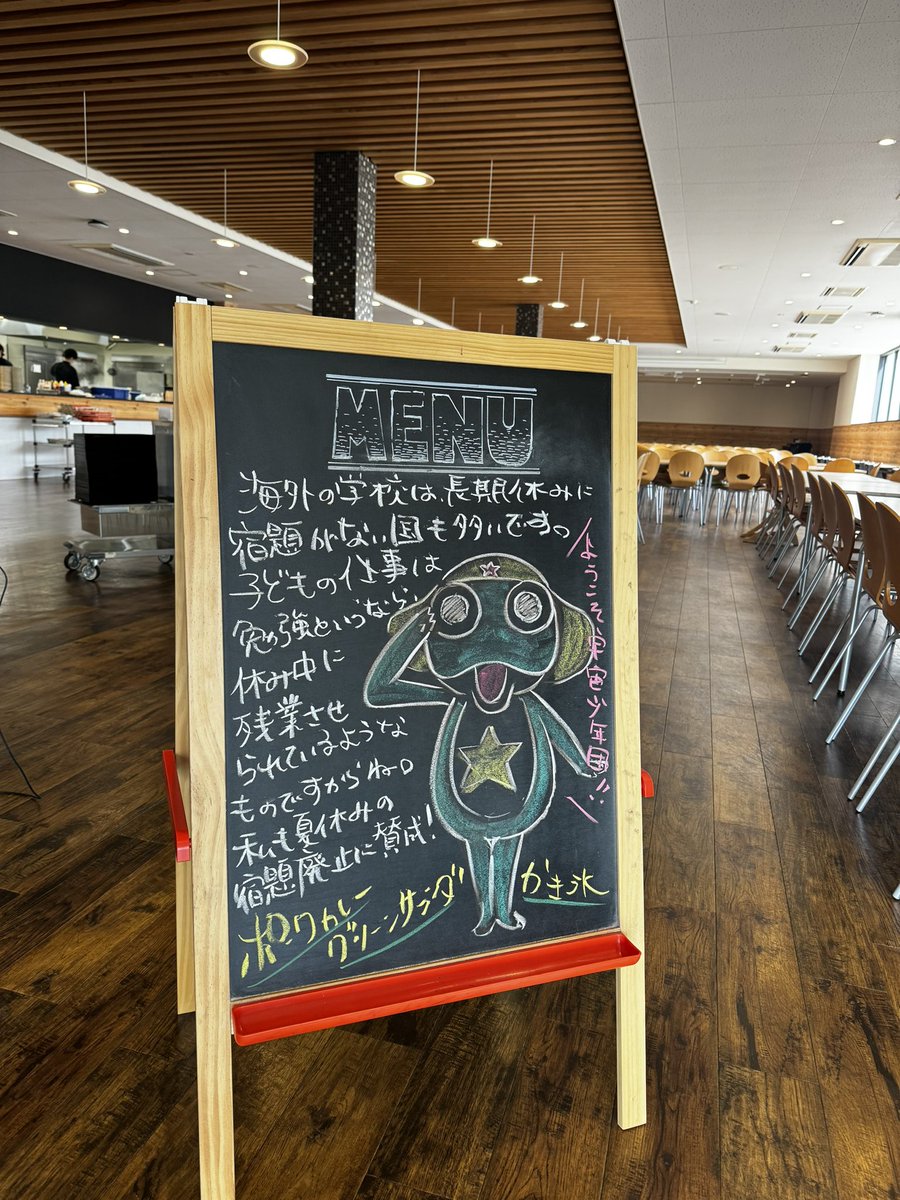 MENU
海外の学校は、長期休みに
宿題がない国も多いですっ
子どもの仕事は
勉強というなら、
休み中に
残業させ
られているような
ものですからね。
私も夏休みの
宿題廃止に賛成！
ようこそ宇宙少年団!!
ポークカレー
グリーンサラダ
かき氷